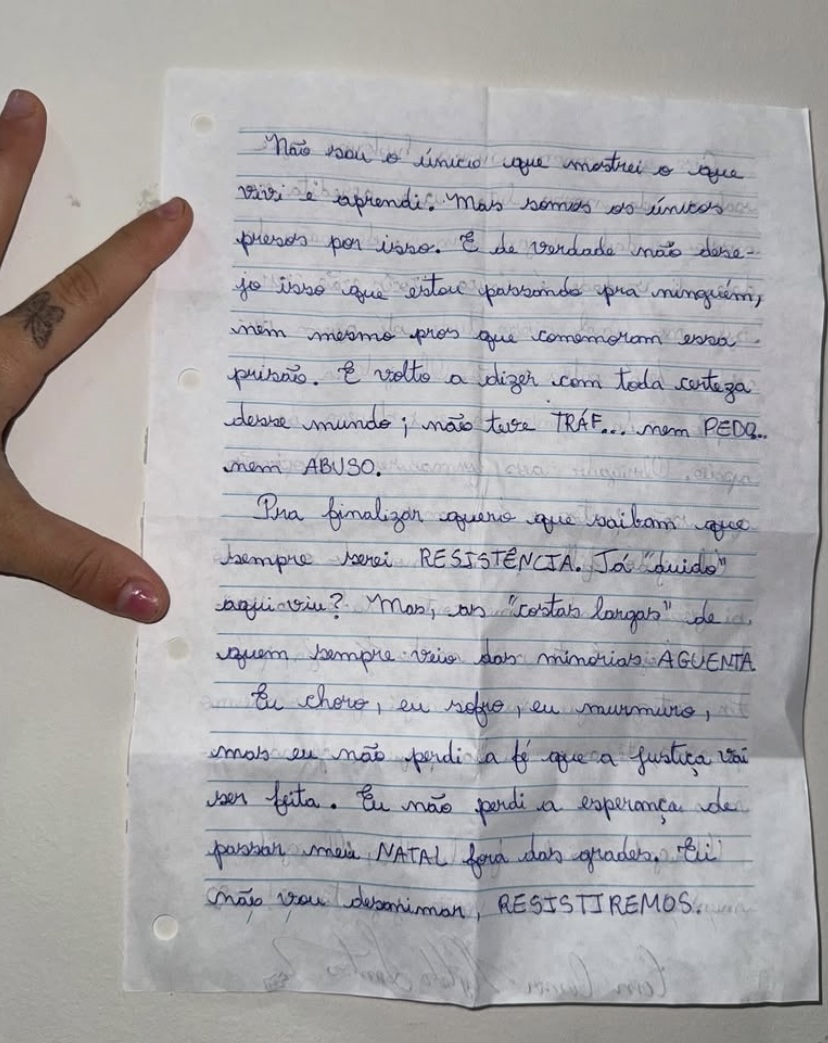 Não sou o único que mostrei o que
vivi e aprendi. Mas somos os únicos
presos por isso. E de verdade não dese-
jo isso que estou passando pra ninguém,
nem mesmo pros que comemoram essa
prisão. E volto a dizer com toda certeza
desse mundo; não teve TRÁF... nem PEDO..
nem ABUSO.
Pra finalizar quero que saibam que
sempre serei RESISTÊNCIA. Já "duido"
aqui viu? Mas, as "costas largas" de
quem sempre veio das minorias AGUENTA
Eu choro, eu sofro, eu murmuro,
mas eu não perdi a fé que a justiça vai
ser feita. Eu não perdi a esperança de
passar meu NATAL fora das grades. Eu
não vou desanimar, RESISTIREMOS.